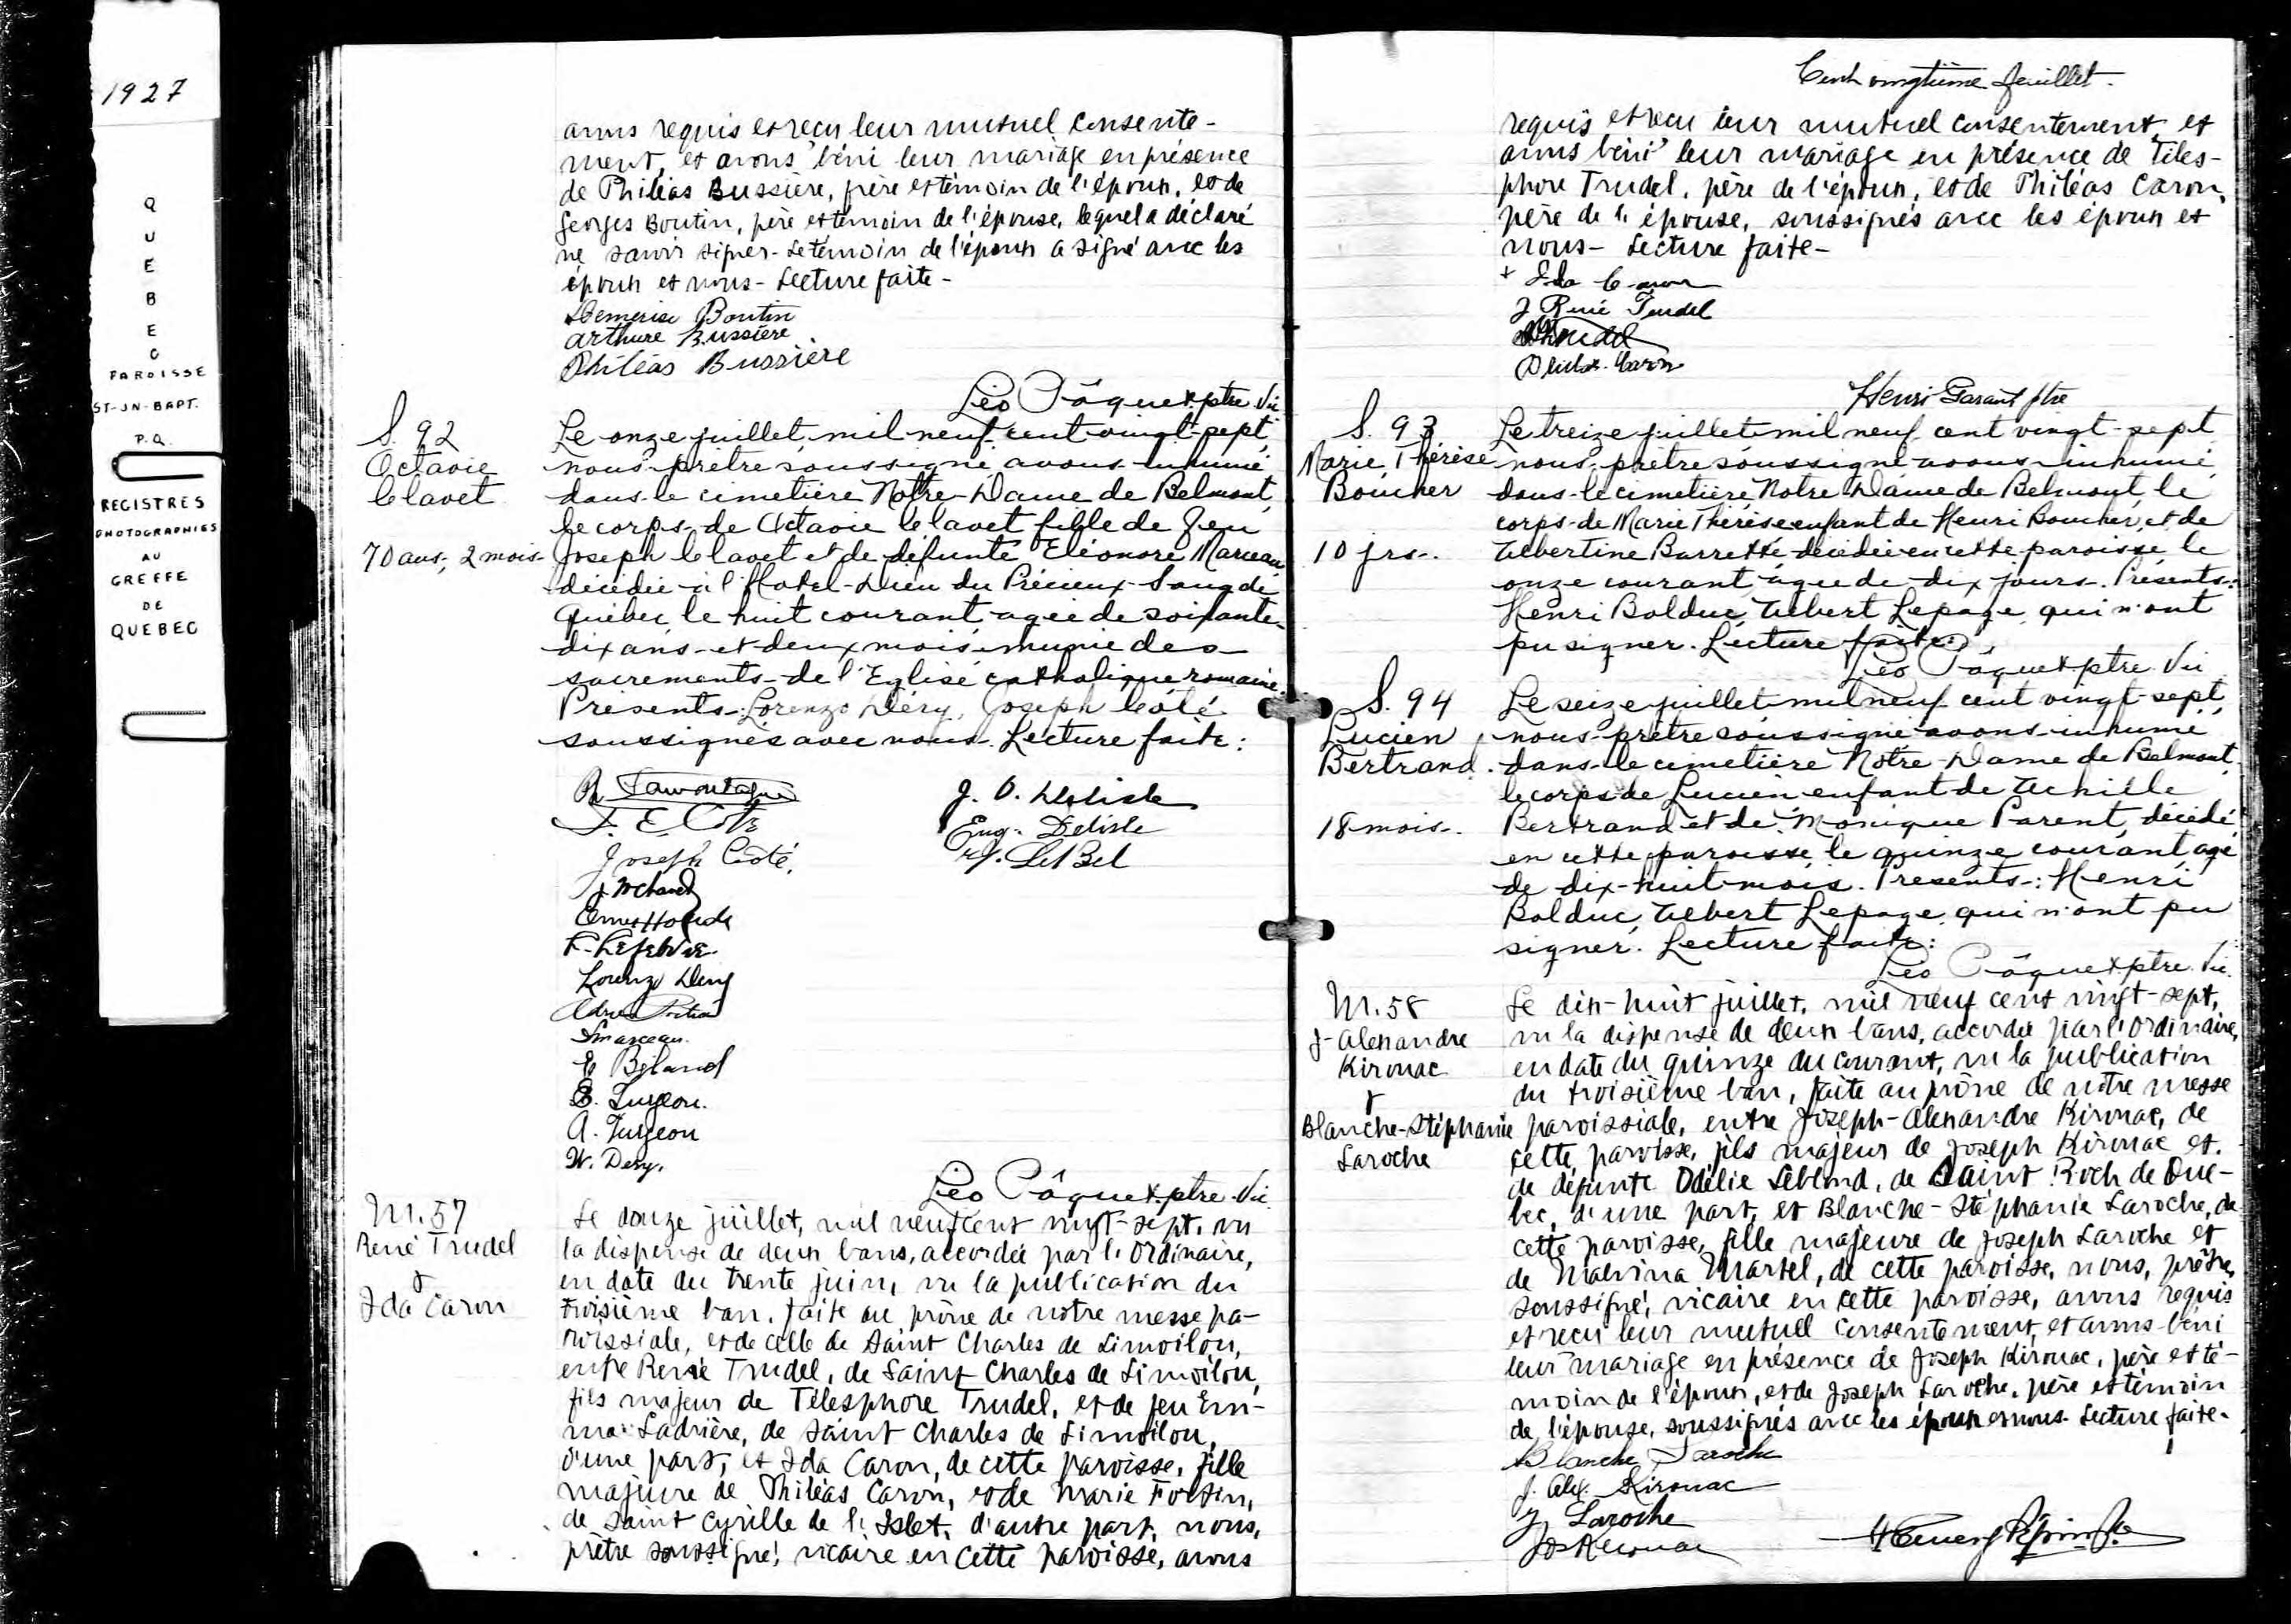 1927
QUEBEC
PAROISSE
ST-JN-BAPT.
P.Q.
REGISTRES
PHOTOGRAPHIES
AU
GREFFE
DE
QUEBEC
avons requis et reçu leur mutuel consente-
ment, et avons béni leur mariage en présence
de Philéas Bussière, père et témoin de l'époux, et de
Georges Boutin, père et témoin de l'épouse, lequel a déclaré
ne savoir signer. Le témoin de l'époux a signé avec les
époux et nous - Lecture faite -
Demerise Boutin
Arthure Bussière
Philéas Bussière
Léo Pâquet ptre Vic
S. 92
Octavie
Clavet
70 ans, 2 mois
Le onze juillet mil neuf cent vingt-sept,
nous prêtre soussigné avons inhumé
dans le cimetière Notre-Dame de Belmont,
le corps de Octavie Clavet fille de feu
Joseph Clavet et de défunte Eléonore Marceau
décédée à l'Hotel-Dieu du Précieux-Sang de
Québec le huit courant agée de soixante-
dix ans et deux mois munie des
sacrements de l'Eglise catholique romaine.
Présents: Lorenzo Déry, Joseph Côté
soussignés avec nous. Lecture faite:
Lamontagne
J. E. Côté
Joseph Côté.
F. Lefebvre
Lorenzo Dery
Marceau
E. Béland
E. Turgeon.
A. Turgeon
W. Dery.
J. O. Delisle
Eug. Delisle
LeBel
Léo Pâquet ptre Vic
M. 57
René Trudel
&
Ida Caron
Le douze juillet, mil neuf cent vingt-sept, vu
la dispense de deux bans, accordée par l'Ordinaire,
en date du trente juin, vu la publication du
troisième ban, faite au prône de notre messe pa-
roissiale, et de celle de Saint Charles de Limoilou,
entre René Trudel, de Saint Charles de Limoilou,
fils majeur de Télesphore Trudel, et de feu Em-
ma Ladrière, de Saint Charles de Limoilou,
d'une part, et Ida Caron, de cette paroisse, fille
majeure de Philéas Caron, et de Marie Fortin,
de Saint Cyrille de l'Islet, d'autre part, nous,
prêtre soussigné, vicaire en cette paroisse, avons
Cent vingtième feuillet.
requis et reçu leur mutuel consentement, et
avons béni leur mariage en présence de Téles-
phore Trudel, père de l'époux, et de Philéas Caron,
père de l'épouse, soussignés avec les époux et
nous - Lecture faite -
+ Ida Caron
J René Trudel
Trudel
Caron
Henri Garant ptre
S. 93
Marie Thérèse
Boucher
10 jrs.
Le treize juillet mil neuf cent vingt-sept
nous prêtre soussigné avons inhumé
dans le cimetière Notre Dame de Belmont, le
corps de Marie Thérèse enfant de Henri Boucher, et de
Albertine Barrette décédée en cette paroisse le
onze courant agée de dix jours. Présents:
Henri Bolduc, Albert Lepage qui n'ont
pu signer. Lecture faite:
Léo Pâquet ptre Vic
S. 94
Lucien
Bertrand.
18 mois.
Le seize juillet mil neuf cent vingt-sept,
nous prêtre soussigné avons inhumé
dans le cimetière Notre-Dame de Belmont,
le corps de Lucien enfant de Achille
Bertrand et de Monique Parent, décédé
en cette paroisse le quinze courant, agé
de dix-huit mois. Présents: Henri
Bolduc, Albert Lepage qui n'ont pu
signer. Lecture faite:
Léo Pâquet ptre. Vic.
M. 58
J-Alexandre
Kirouac
&
Blanche-Stéphanie
Laroche
Le dix-huit juillet, mil neuf cent vingt-sept,
vu la dispense de deux bans, accordée par l'Ordinaire,
en date du quinze du courant, vu la publication
du troisième ban, faite au prône de notre messe
paroissiale, entre Joseph-Alexandre Kirouac, de
cette paroisse, fils majeur de Joseph Kirouac et
de défunte Odélie Leblond, de Saint Roch de Qué-
bec, d'une part, et Blanche-Stéphanie Laroche, de
cette paroisse, fille majeure de Joseph Laroche et
de Malvina Martel, de cette paroisse, nous, prêtre,
soussigné, vicaire en cette paroisse, avons requis
et reçu leur mutuel consentement, et avons béni
leur mariage en présence de Joseph Kirouac, père et té-
moin de l'époux, et de Joseph Laroche, père et témoin
de l'épouse, soussignés avec les époux et nous. Lecture faite.
Blanche Laroche
J. Alex. Kirouac
J Laroche
Jos Kirouac